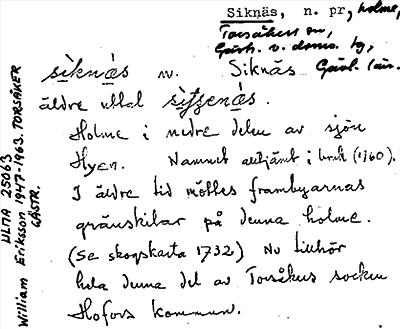 Siknäs, n. pr, holme,
Torsåkers sn,
Gästr. v. doms. tg,
Gävl. län.
sìknä̀s n. Siknäs
äldre uttal
Holme i nedre delen av sjön
Hyen. Namnet alltjämt i bruk (1960).
I äldre tid möttes frambyarnas
gränsskillnader på denna holme.
(Se skogskarta 1732) Nu tillhör
hela denna del av Torsåkers socken
Hofors kommun.
ULMA 25063
William Eriksson 1947-1963. TORSÅKER
GÄSTR.